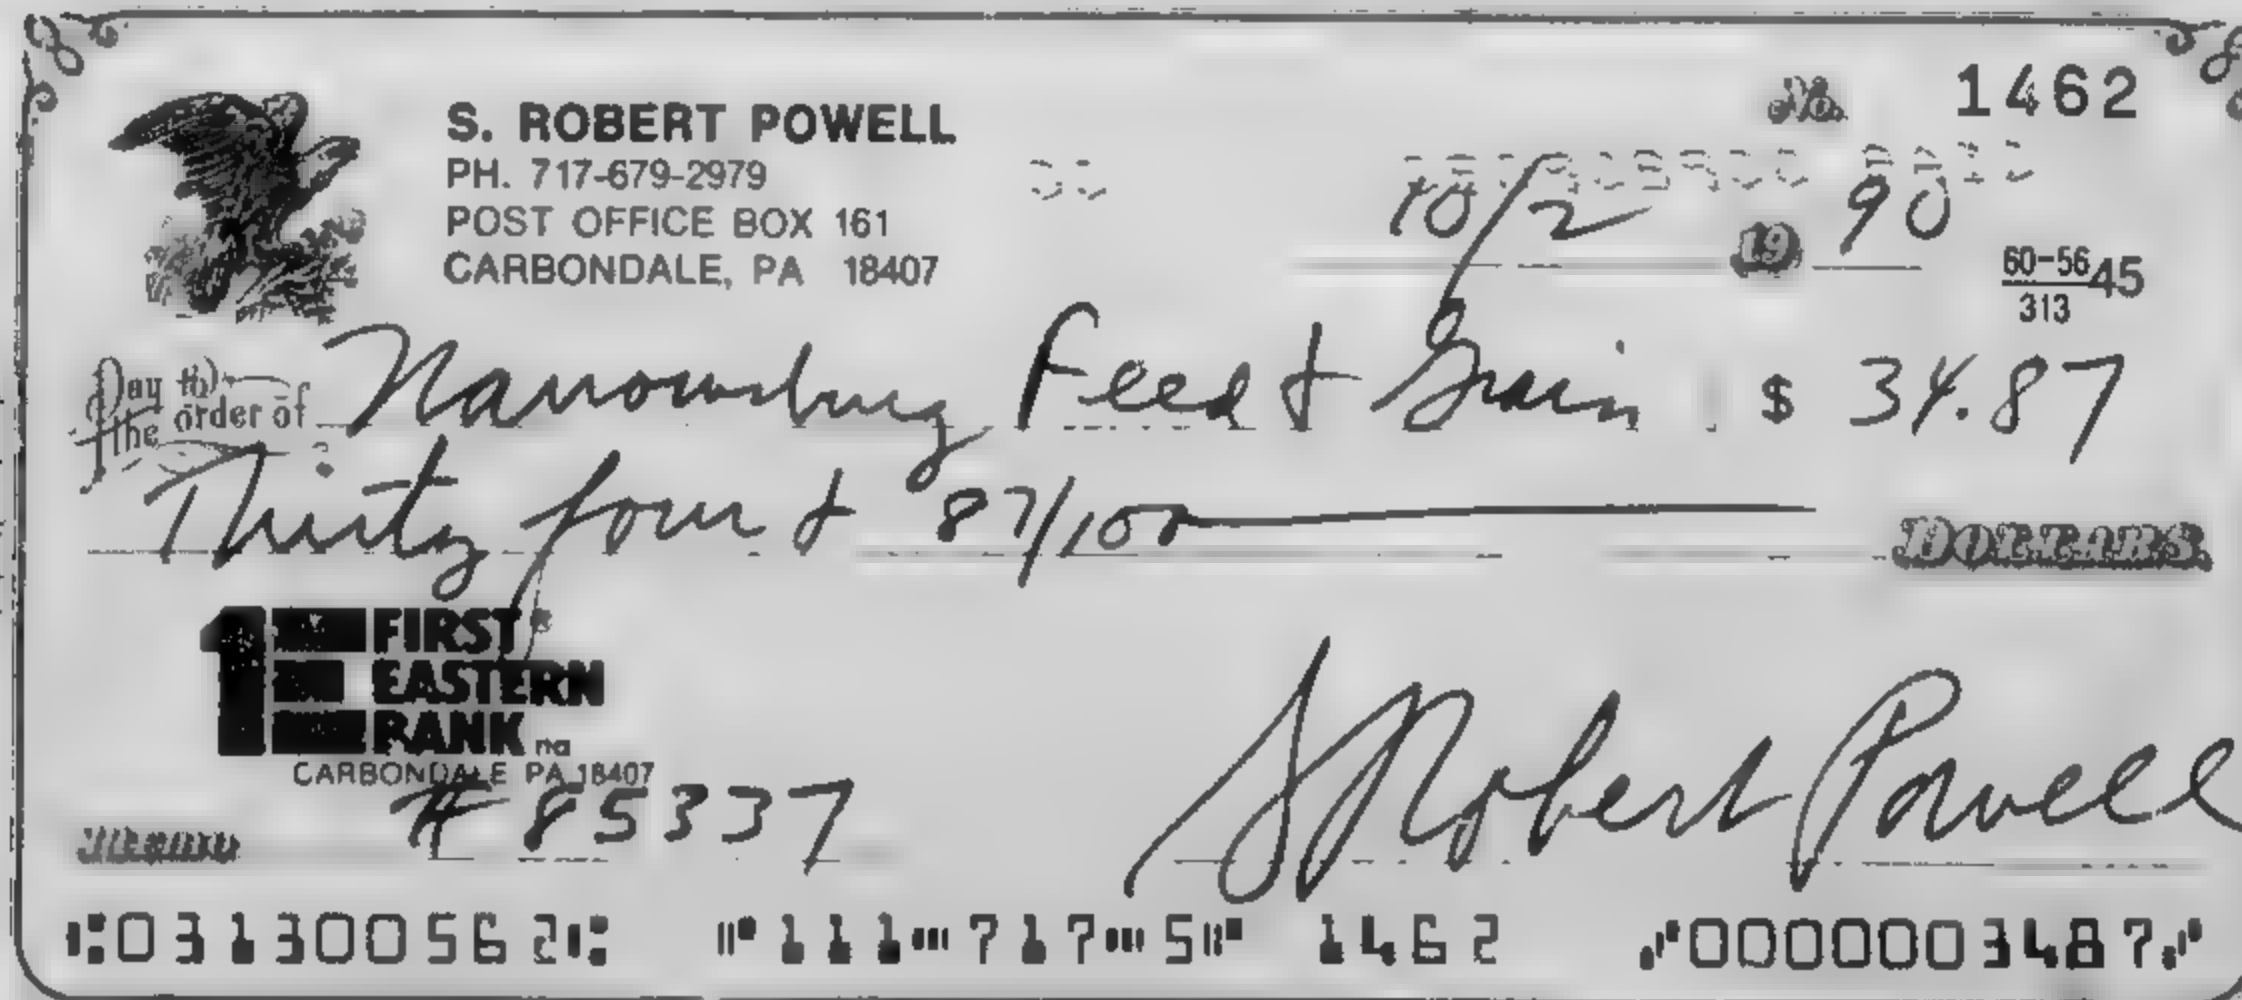 No. 1462
S. ROBERT POWELL
PH. 717-679-2979
POST OFFICE BOX 161
CARBONDALE, PA 18407
10/2 19 90
60-56 45
313
Pay to the order of Narrowsburg Feed & Grain $ 34.87
Thirty four & 87/100 DOLLARS
1E FIRST EASTERN BANK na
CARBONDALE PA 18407
Memo # 85337 S Robert Powell
⑆031300562⑆ ⑈111⑉717⑉5⑈ 1462 ⑇0000003487⑇